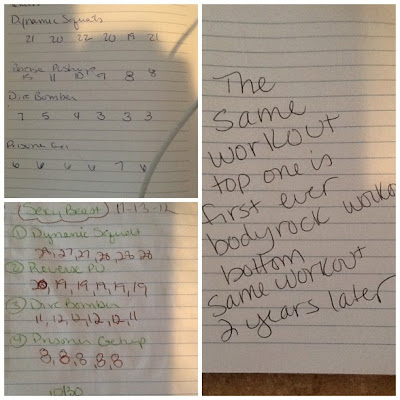 Dynamic Squats
21 20 22 20 19 21
Reverse Pushups
15 11 10 9 8 8
Dive Bomber
7 5 4 3 3 3
Prisone
6 6 6 6 7 6
Sexy Beast 11-13-12
① Dynamic Squat
29, 27, 27, 28, 28, 28
② Reverse PU
20, 19, 19, 19, 19, 19
③ Dive Bomber
11, 12, 12, 12, 12, 11
④ Prisoner Getup
8, 8, 8, 8, 8
10130
The
same
workout
top one is
first ever
bodyrock worko
bottom
same workout
2 years later